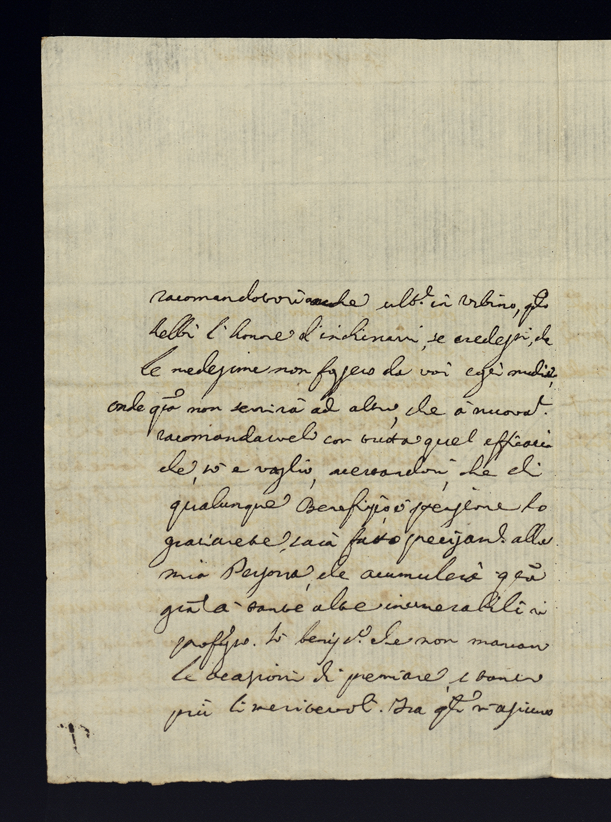 racomandatovi anche ult.e in Urbino, q.do
hebbi l'honore d'inchinarvi, se credessi, che
le medesime non fossero da voi
onde q.a non servirà ad altro, che à nuovam.
racomandarveli con tutta quel efficacia
che sò e voglio, accertandovi, che di
qualunque Benefizio ò pensione lo
graziarete, sarà fatto precisam. alla
mia Persona, che acumulerà q.a
graz.a à tante altre inumerabili vi
professo. Sò beniss.o che non mancan
le ocasioni di premiare, e tanti
più li meritevol. Frà q.li v'assicuro